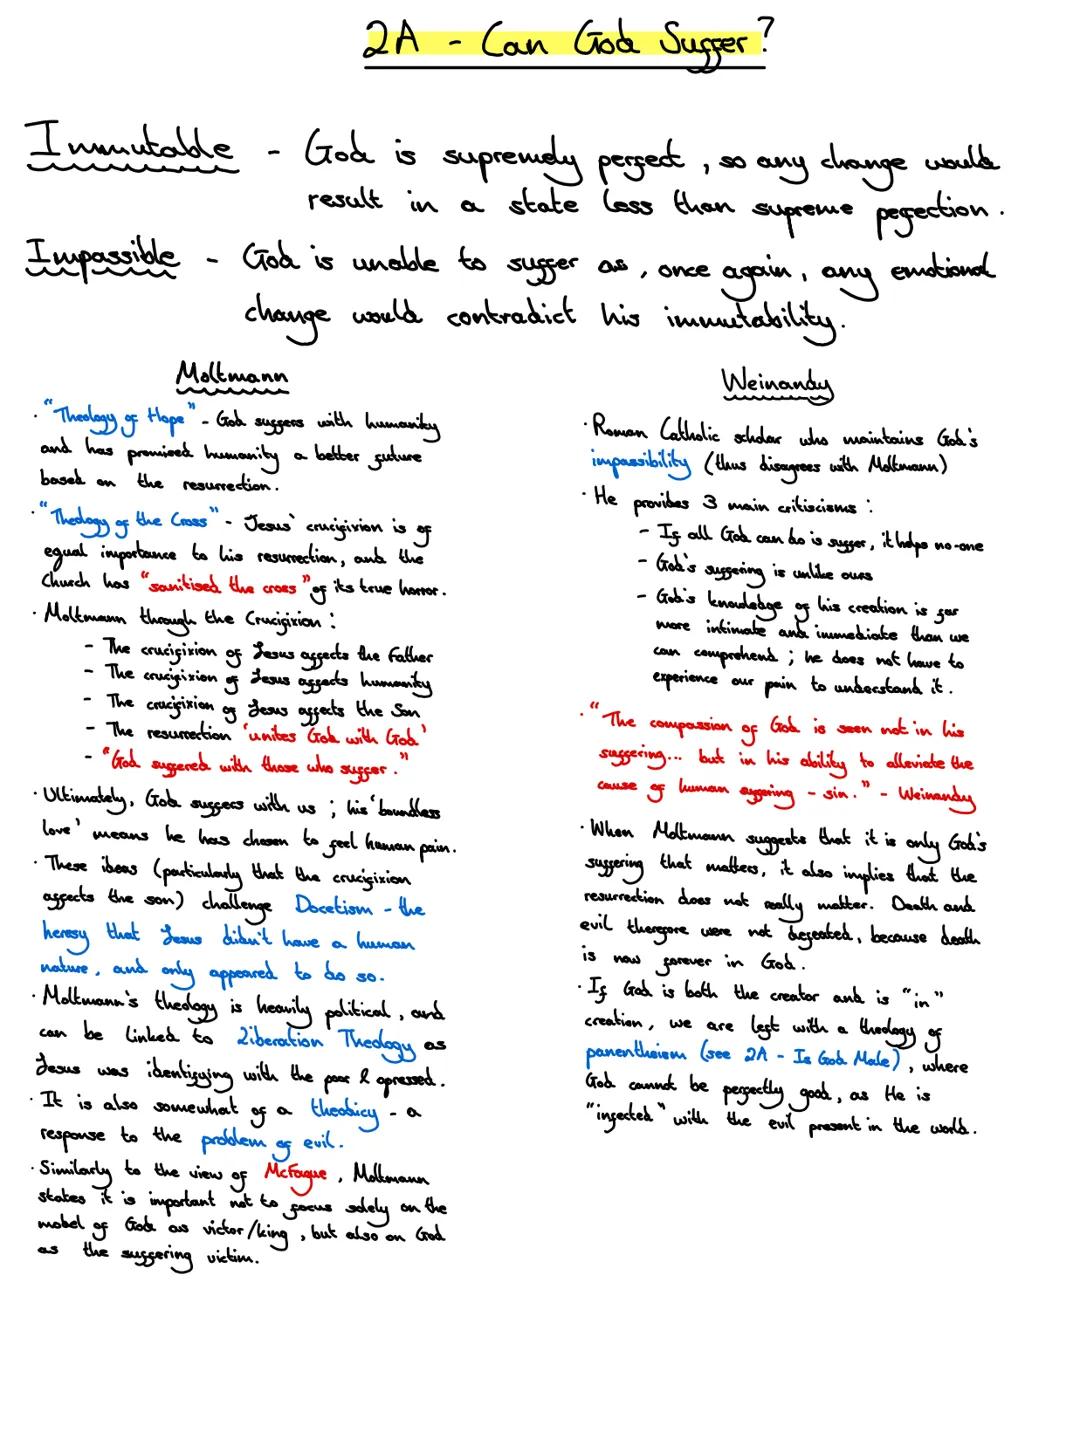 2A - Can God Suffer?
Immutable - God is supremely perfect, so any change would
result in a state less than supreme pefection.
Impassible - God is unable to suffer as, once again, any emotional
change would contradict his immutability.
Moltmann
· "Theology of Hope" - God suffers with humanity
and has promised humanity a better future
based on the resurrection.
· "Theology of the Cross" - Jesus' crucifixion is of
equal importance to his resurrection, and the
Church has "sanitised the cross" of its true horror.
· Moltmann through the Crucifixion :
- The crucifixion of Jesus affects the Father
- The crucifixion of Jesus affects humanity
- The crucifixion of Jesus affects the Son
- The resurrection 'unites God with God'
- "God suffered with those who suffer."
· Ultimately, God suffers with us ; his 'boundless
love' means he has chosen to feel human pain.
· These ideas (particularly that the crucifixion
affects the son) challenge Docetism - the
heresy that Jesus didn't have a human
nature, and only appeared to do so.
· Moltmann's theology is heavily political, and
can be linked to Liberation Theology as
Jesus was identifying with the poor & opressed.
· It is also somewhat of a theodicy - a
response to the problem of evil.
· Similarly to the view of McFague, Moltmann
states it is important not to focus solely on the
model of God as victor/king, but also on God
as the suffering victim.
Weinandy
· Roman Catholic scholar who maintains God's
impassibility (thus disagrees with Moltmann)
· He provides 3 main critiscisms :
- If all God can do is suffer, it helps no-one
- God's suffering is unlike ours
- God's knowledge of his creation is far
more intimate and immediate than we
can comprehend ; he does not have to
experience our pain to understand it.
· "The compassion of God is seen not in his
suffering... but in his ability to alleviate the
cause of human suffering - sin." - Weinandy
· When Moltmann suggests that it is only God's
suffering that matters, it also implies that the
resurrection does not really matter. Death and
evil therefore were not defeated, because death
is now forever in God.
· If God is both the creator and is "in"
creation, we are left with a theology of
panentheism (see 2A - Is God Male), where
God cannot be perfectly good, as He is
"infected" with the evil present in the world.